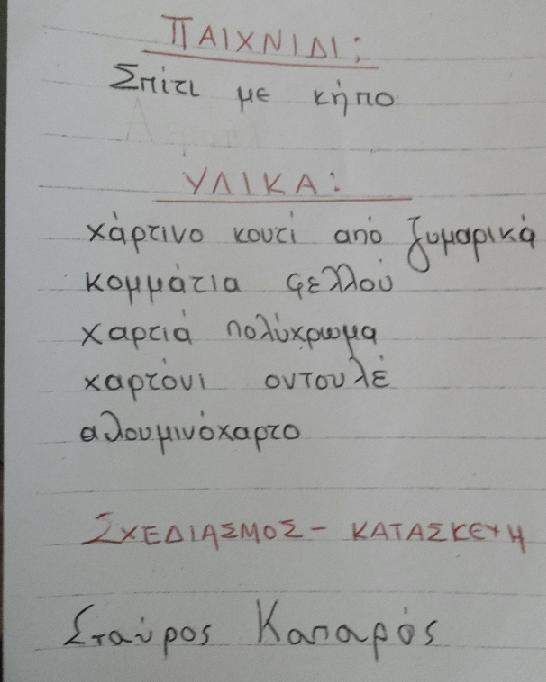 ΠΑΙΧΝΙΔΙ:
Σπίτι με κήπο
ΥΛΙΚΑ:
χάρτινο κουτί από ζυμαρικά
κομμάτια φελλού
χαρτιά πολύχρωμα
χαρτόνι οντουλέ
αλουμινόχαρτο
ΣΧΕΔΙΑΣΜΟΣ - ΚΑΤΑΣΚΕΥΗ
Σταύρος Καπαρός